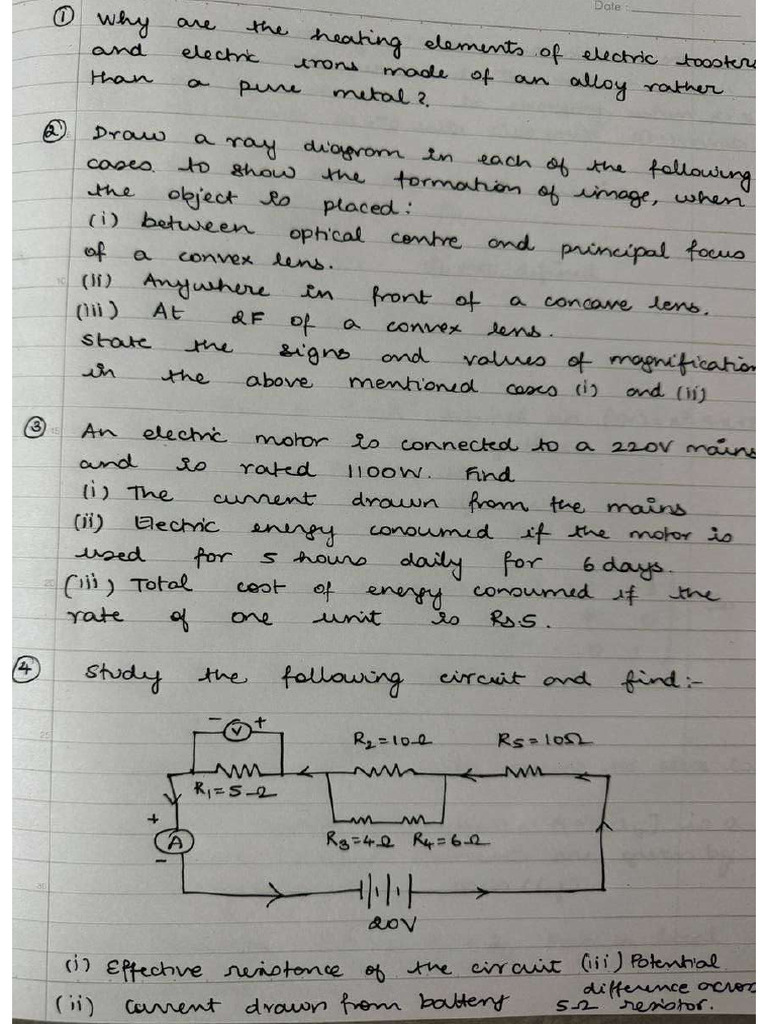 Date :
① Why are the heating elements of electric toosters
and electric irons made of an alloy rather
than a pure metal?
② Draw a ray diagram in each of the following
cases. to show the formation of image, when
the object is placed:
(i) between optical centre and principal focus
of a convex lens.
(ii) Anywhere in front of a concave lens.
(iii) At 2F of a convex lens.
State the signs and values of magnification
in the above mentioned cases (i) and (ii)
③ An electric motor is connected to a 220V mains
and is rated 1100W. Find
(i) The current drawn from the mains
(ii) Electric energy consumed if the motor is
used for 5 hours daily for 6 days.
(iii) Total cost of energy consumed if the
rate of one unit is Rs.5.
④ Study the following circuit and find:-
- V +
R2=10Ω R5=10Ω
R1=5Ω
+
A
-
R3=4Ω R4=6Ω
20V
(i) Effective resistance of the circuit (iii) Potential
difference across
(ii) current drawn from battery 5Ω resistor.